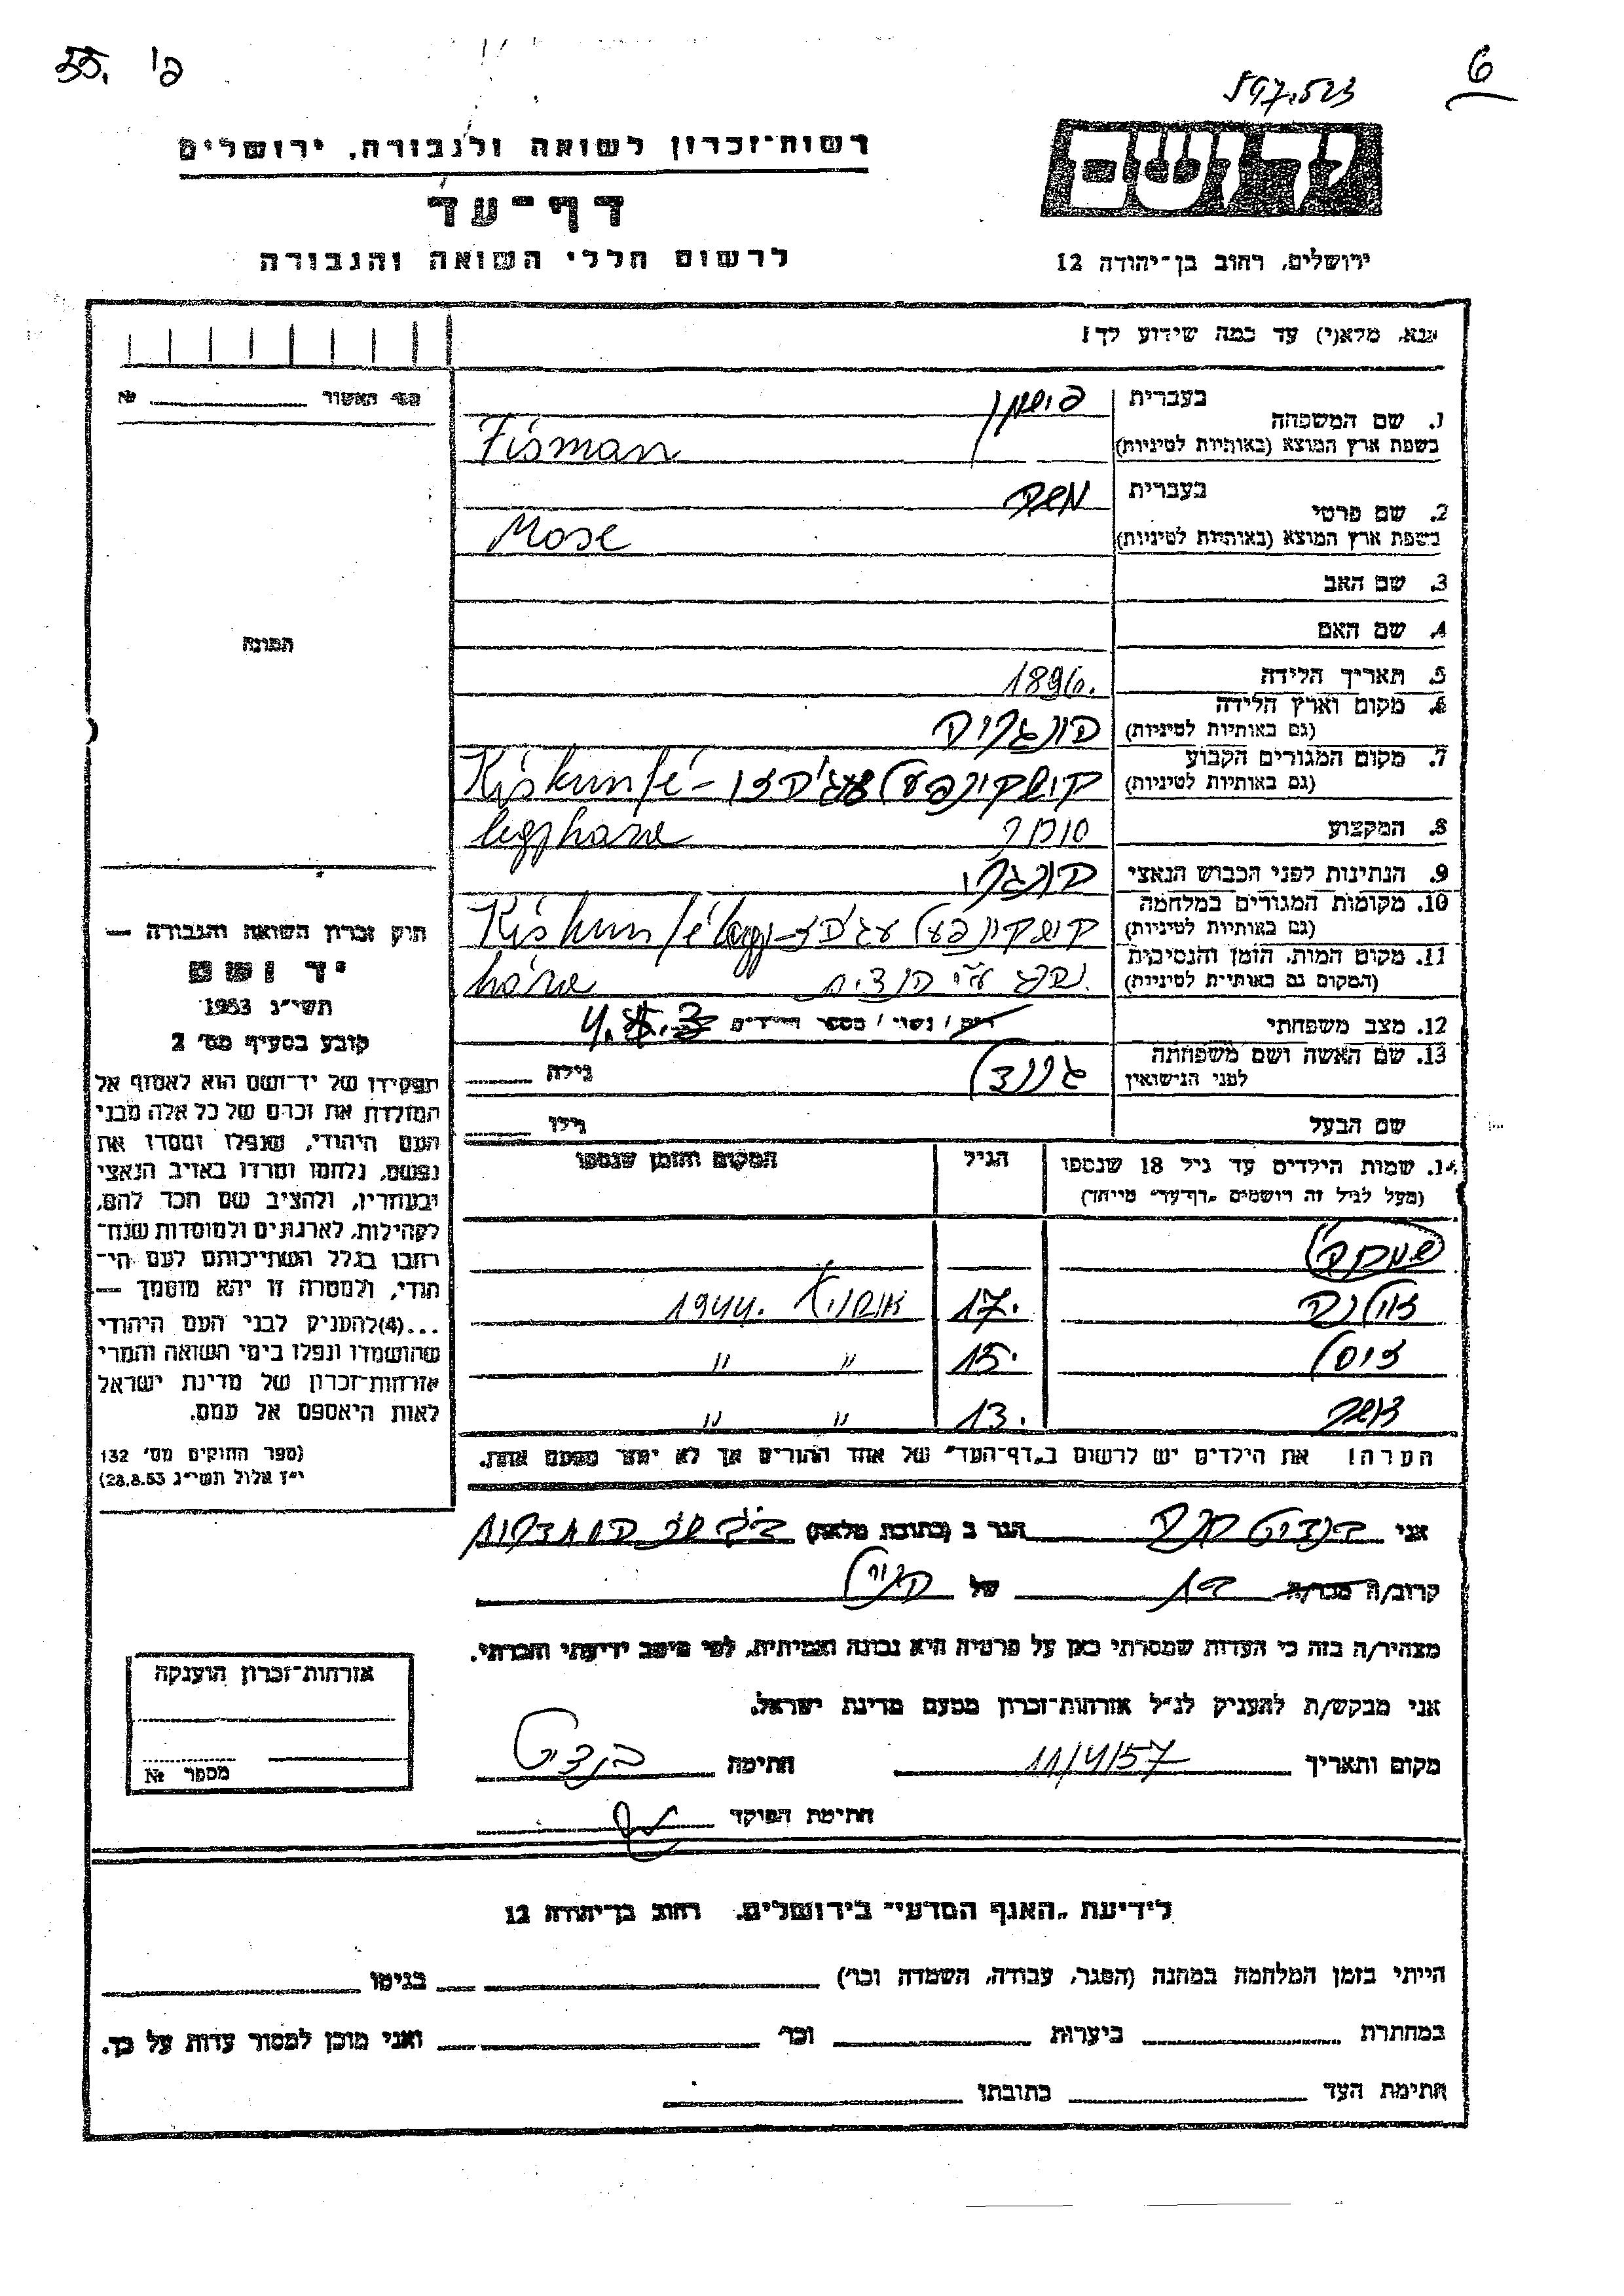 55. פ'
6
597.523
רשות-זכרון לשואה ולגבורה, ירושלים
דף-עד
לרשום חללי השואה והגבורה
ידושם
ירושלים, רחוב בן-יהודה 12
נא, מלא(י) עד כמה שידוע לך!
מס' האשור № ____
1. שם המשפחה
בעברית פישמן
בשפת ארץ המוצא (באותיות לטיניות) Fisman
2. שם פרטי
בעברית משה
בשפת ארץ המוצא (באותיות לטיניות) Mose
3. שם האב
4. שם האם
5. תאריך הלידה 1896.
6. מקום וארץ הלידה
(גם באותיות לטיניות) הונגריה
7. מקום המגורים הקבוע
(גם באותיות לטיניות) Kiskunfé-
8. המקצוע סוחר legyhaza
9. הנתינות לפני הכבוש הנאצי הונגרי
10. מקומות המגורים במלחמה
(גם באותיות לטיניות) Kiskunfélegy-
11. מקום המות, הזמן והנסיבות
(המקום גם באותיות לטיניות) ע"י הנצים háza
12. מצב משפחתי רווק / נשוי / מספר הילדים 4.
13. שם האשה ושם משפחתה
לפני הנישואין גילה
שם הבעל גילו
התמונה
חוק זכרון השואה והגבורה —
יד ושם
תשי"ג 1953
קובע בסעיף מס' 2
תפקידו של יד-ושם הוא לאסוף אל
המולדת את זכרם של כל אלה מבני
העם היהודי, שנפלו ומסרו את
נפשם, נלחמו ומרדו באויב הנאצי
ובעוזריו, ולהציב שם וזכר להם,
לקהילות, לארגונים ולמוסדות שנח-
רבו בגלל השתייכותם לעם הי-
הודי, ולמטרה זו יהא מוסמך —
...(4) להעניק לבני העם היהודי
שהושמדו ונפלו בימי השואה והמרי
אזרחות-זכרון של מדינת ישראל
לאות היאספם אל עמם.
(ספר החוקים מס' 132
י"ז אלול תשי"ג 28.8.53)
14. שמות הילדים עד גיל 18 שנספו
(מעל לגיל זה רושמים "דף-עד" מיוחד)
הגיל
המקום והזמן שנספו
17. 1944.
15. " "
13. " "
הערה! את הילדים יש לרשום ב"דף-העד" של אחד ההורים אך לא יותר מפעם אחת.
אני הגר ב (כתובת מלאה)
קרוב/ה מכר/ה של
מצהיר/ה בזה כי העדות שמסרתי כאן על פרטיה היא נכונה ואמיתית, לפי מיטב ידיעתי והכרתי.
אני מבקש/ת להעניק לנ"ל אזרחות-זכרון מטעם מדינת ישראל.
מקום ותאריך 11/4/57 חתימה
חתימת הפוקד
אזרחות-זכרון הוענקה
מספר №
לידיעת "האגף המדעי" בירושלים, רחוב בן-יהודה 12
הייתי בזמן המלחמה במחנה (הסגר, עבודה, השמדה וכו') בגיטו
במחתרת ביערות וכו' ואני מוכן למסור עדות על כך.
חתימת העד כתובתו